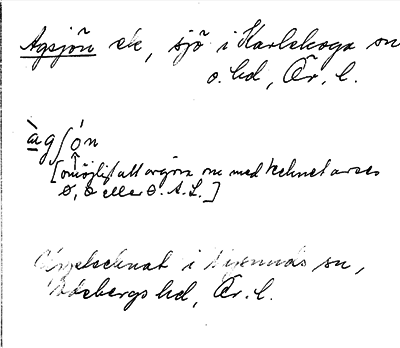 Agsjön ek, sjö i Karlskoga sn
o. hd, Ör. l.
àgʃón
[omöjligt att avgöra om med tecknet avses
o, o eller o. A.L.]
Antecknat i Nysunds sn,
Edsbergs hd, Ör. l.